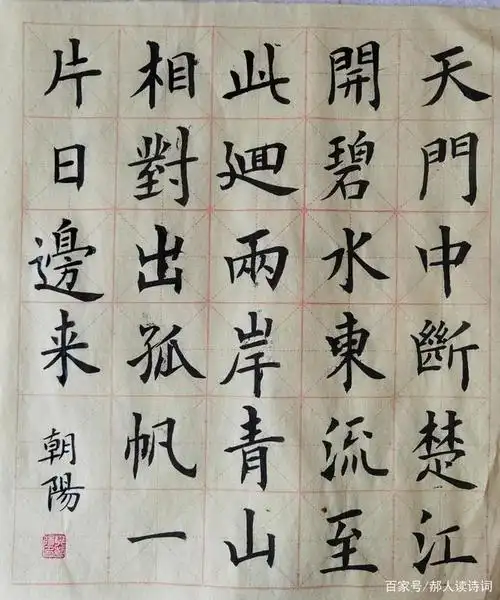 天門中斷楚江
開碧水東流至
此廻兩岸青山
相對出孤帆一
片日邊来
朝陽
百家号/郝人读诗词